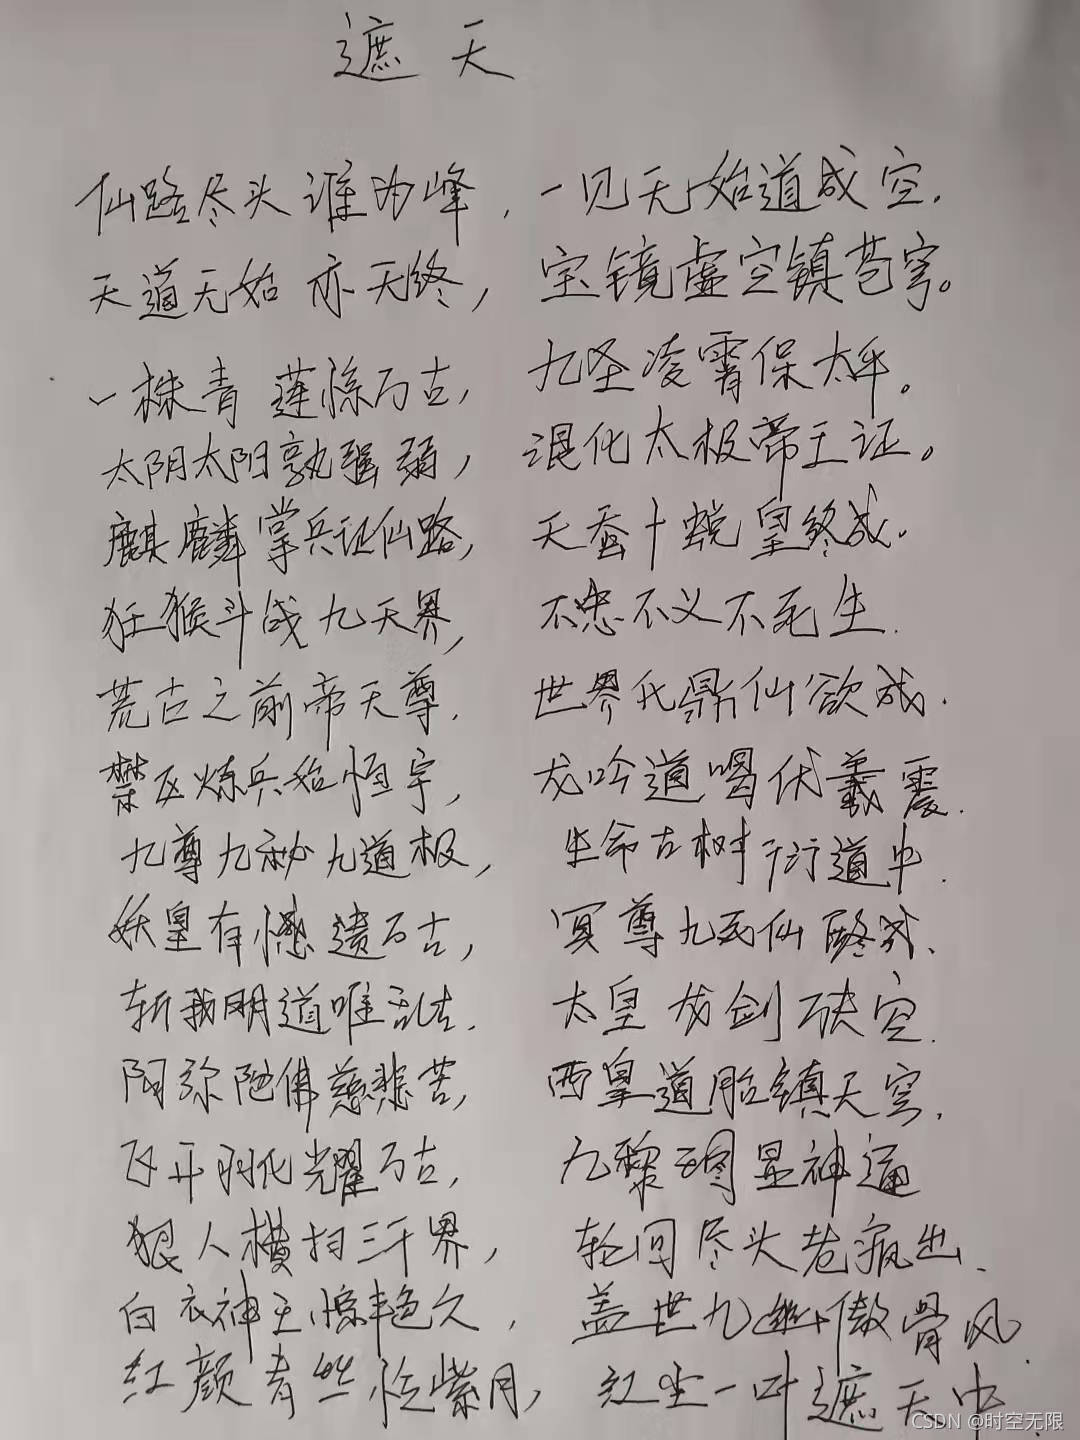 遮天
仙路尽头谁为峰，一见无始道成空.
天道无始亦无终，宝镜虚空镇苍穹。
一株青莲惊万古，九圣凌霄保太平。
太阴太阳孰强弱，混化太极帝王证。
麒麟掌兵证仙路，天蚕十蜕皇终成.
狂猴斗战九天界，不忠不义不死生.
荒古之前帝天尊.世界化鼎仙欲成.
禁区炼兵始恒宇，龙吟道喝伏羲震.
九尊九秘九道极，生命古树衍道中.
妖皇有憾遗万古，冥尊九死仙路成.
斩我明道唯乱古.太皇龙剑破空.
阿弥陀佛慈悲苦，西皇道胎镇天穹.
飞升羽化光耀万古，九黎图显神通
狠人横扫三千界，轮回尽头老疯出.
白衣神王惊艳久，盖世九幽傲骨风.
红颜青丝忆紫月，红尘一叶遮天中.
CSDN @时空无限